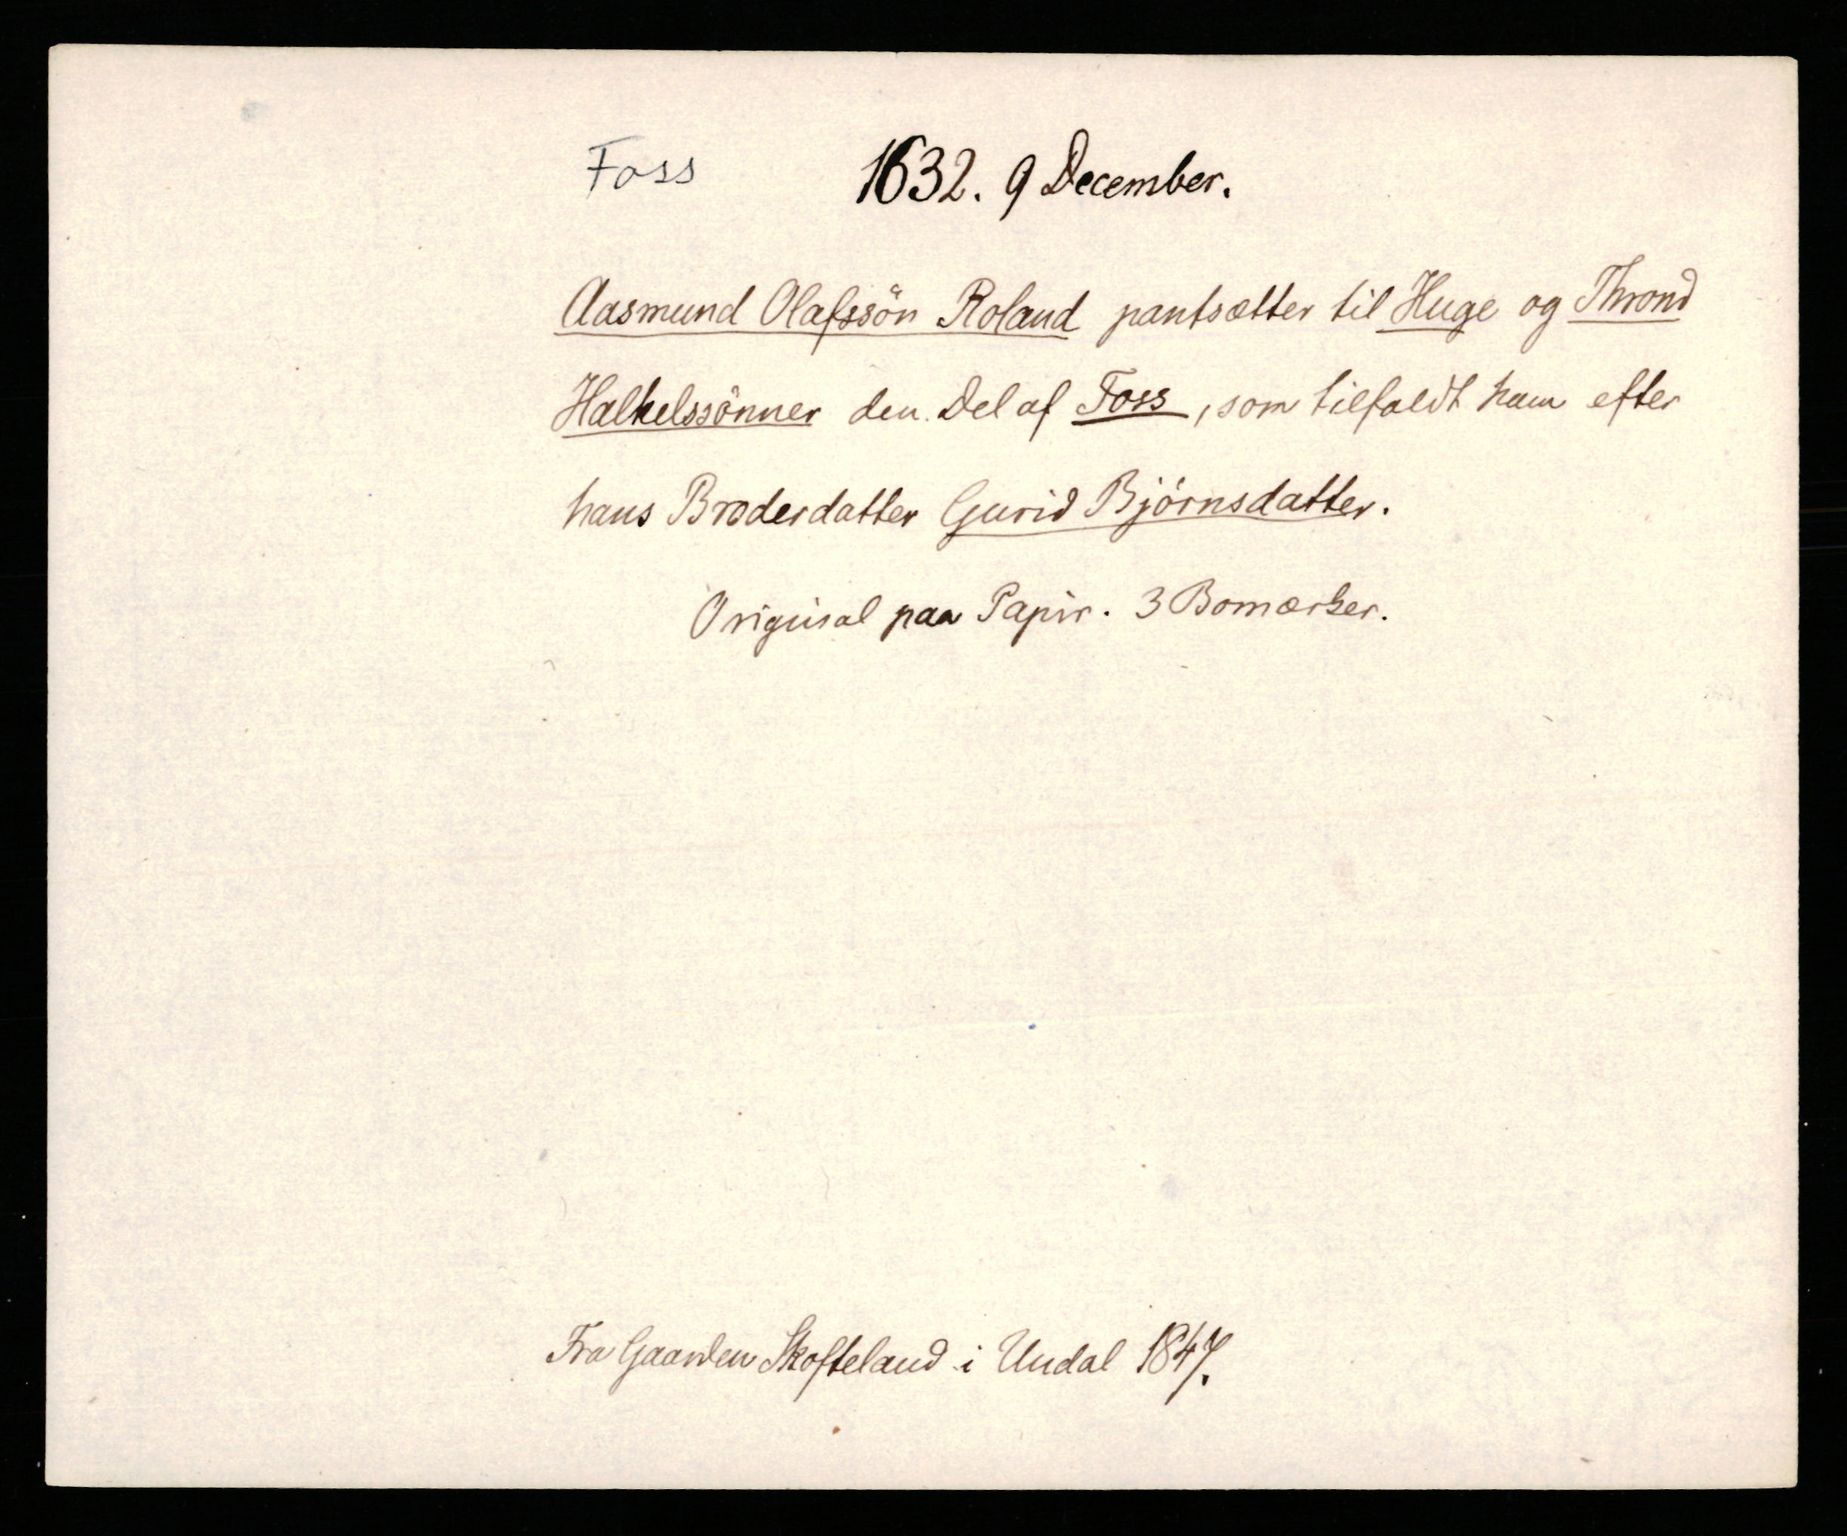 Foss 1632. 9 December.
Aasmund Olafssön Roland pantsætter til Huge og Thrond
Halkelssönner den Del af Foss, som tilfaldt ham efter
hans Broderdatter Gurid Björnsdatter.
Original paa Papir. 3 Bomærker.
Fra Gaarden Skofteland i Undal 1847.